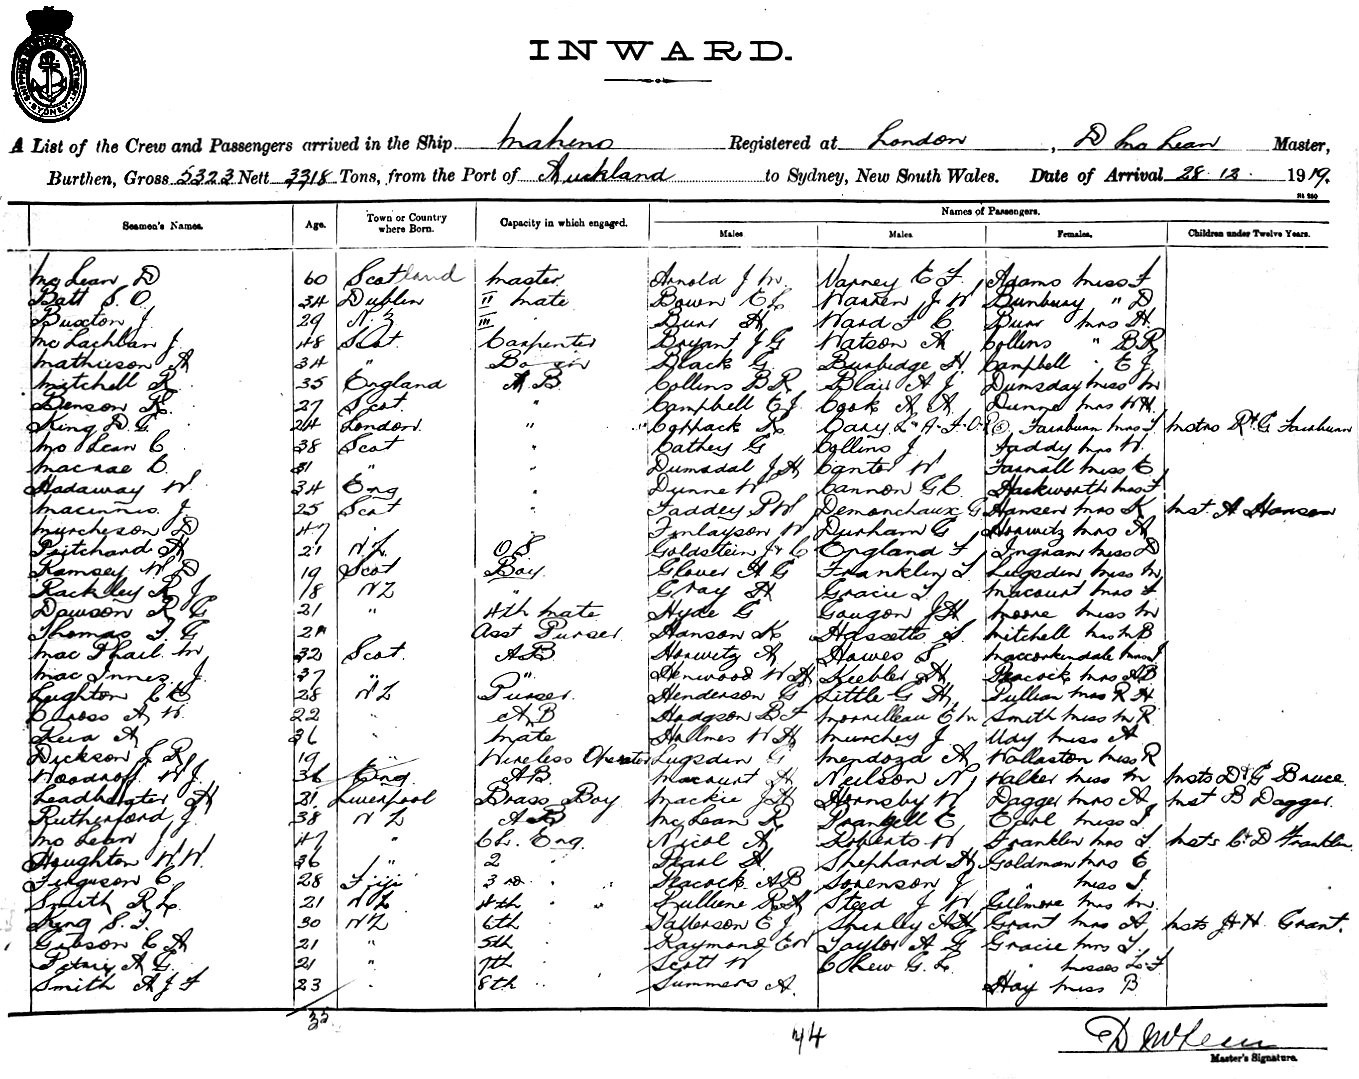 SHIPPING MASTER'S DEPARTMENT SYDNEY
INWARD.
A List of the Crew and Passengers arrived in the Ship Maheno Registered at London, D McLean Master,
Burthen, Gross 5323 Nett 3318 Tons, from the Port of Auckland to Sydney, New South Wales. Date of Arrival 28.12. 1919.
Names of Passengers.
Seamen's Names. Age. Town or Country where Born. Capacity in which engaged. Males Males. Females. Children under Twelve Years.
McLean D 60 Scotland Master Arnold J W Varney E F Adams Miss F
Batt S O 34 Dublin II Mate Bowen E L Warren J W Bunbury " D
Buxton J. 29 N.Z III " Burr H Ward F C Burr Mrs H
McLachlan J 48 Scot. Carpenter Bryant J G Watson A Collins " B R
Mathieson A 34 " Black G Burbidge H Campbell " E J
Mitchell R 35 England A B Collins B R Blair A J Dumsday Miss M
Benson R 27 Scot. " Campbell E J Cook A A Dunne Mrs W H
King D G 24 London " Fairburn Mrs F Mstrs R & G Fairburn
McLean C 38 Scot " Cathey G Collins J Faddy Mrs W.
Macrae C. 31 " " Dumsdal J H Canter W Farnall Miss E
Hadaway W 34 Eng " Dunne W Cannon G C Hackworth Mrs F
Macinnis J 25 Scot " Faddey P W Demonchaux G Hansen Mrs K Mst. A Hansen
Murcheson D 47 " " Finlayson W Durham G Horwitz Mrs A
Pritchard A 21 N.Z. O S Goldstein J & C England F Ingram Miss D
Ramsey W D 19 Scot Boy Glover A G Franklin L Lugsdin Miss M
Rackley R J 18 NZ " Gray H Gracie L Macourt Mrs F
Dawson R G 21 " 4th Mate Hyde G Gougon J H Moore Miss M
Thomas L G Asst Purser Hanson K Hassetts S Mitchell Mrs M B
MacPhail M 32 Scot. A B Horwitz A Hawes S Maccorkindale Mrs J
MacInnes J. 37 " " Henwood W H Keebler H Peacock Mrs A B
Leighton C E 28 N Z Purser Henderson G Little G H Pullian Mrs R H
Cross A W. 22 " A B Hodgson B F Morrilleau E M Smith Miss M R
Keir A 36 " Mate Holmes W H Murchey J. Udy Miss A
Dickson J R 19 " Wireless Operator Lugsdin G Mendoza A Wollaston Miss R
Woodroff W J. 36 Eng. A B Macourt H Neilson N Walker Miss M Msts D & G Bruce
Leadbeater H 21 Liverpool Brass Boy Mackie J H Hornsby W Dagger Mrs A Mst B Dagger
Rutherford J 38 N Z A B McLean R Prangell E Earl Miss I
McLean J 47 " Ch. Eng. Nicol A Roberts W Franklin Mrs L Msts C & D Franklin
Houghton W W. 36 " 2 " Pearl H Shephard H Goldman Mrs E
Ferguson C 28 Fiji 3rd " Peacock A B Sorenson J " Miss I
Smith R L 21 N Z 4th " Pulliene R H Steed J W Gilmore Mrs M.
King S. T. 30 NZ 6th Patterson E J Shirley A H Grant Mrs A Msts J & H Grant.
Gibson C A 21 " 5th Raymond E W Taylor A G Gracie Mrs L.
Petrie A G. 21 " 7th " Scott W Chew G L " Misses L. F
Smith A J F 23 " 8th " Summers A. Hay Miss B
44
D McLean
Master's Signature.